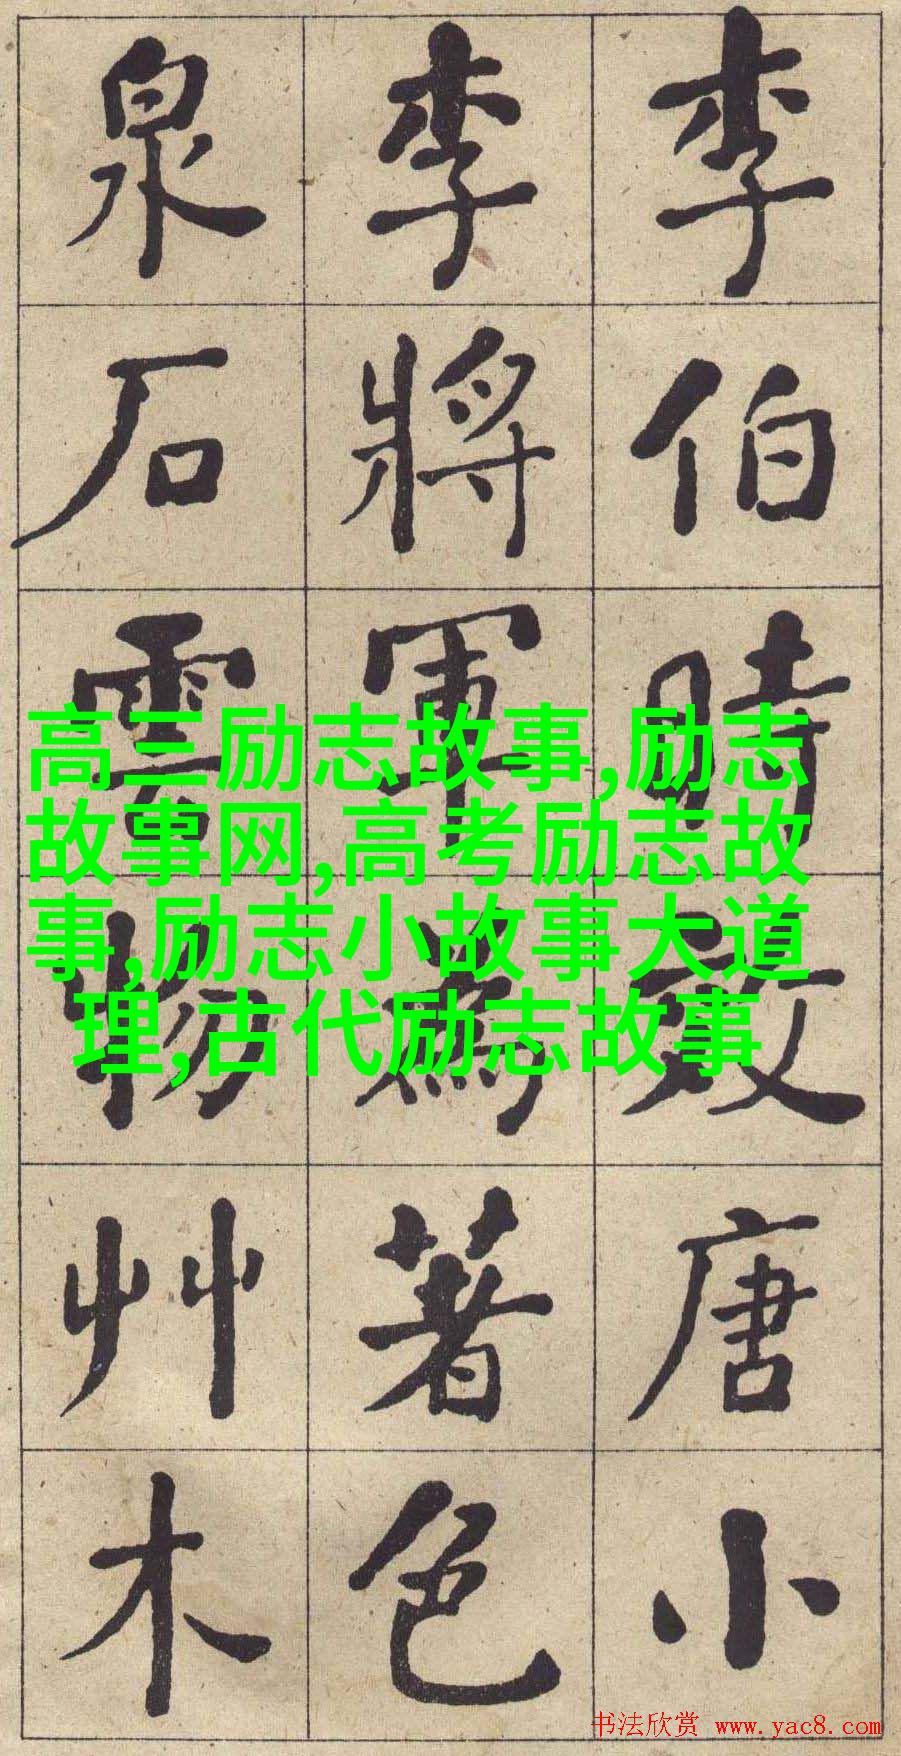 李伯時效唐小
李將軍爲著色
泉石雲物艸木
高三励志故事,励志
故事网,高考励志故
事,励志小故事大道
理,古代励志故事
书法欣赏 www.yac8.com